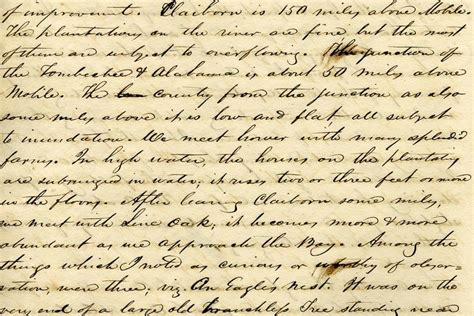 of improvement. Claiborn is 150 miles above Mobile.
The plantations on the river are fine, but the most
of them are subject to overflowing. The junction of
the Tombecbee & Alabama is about 50 miles above
Mobile. The country from the junction as also
some miles above it is low and flat all subject
to inundation. We meet hower with many splendid
farms. In high water, the houses on the plantatis
are submerged in water; it rises two or three feet or more
in the floors. After leaving Claiborn some miles,
we meet with Live Oak; it becomes more & more
abundant as we approach the Bay. Among the
things which I noted as curious or worthy of obser-
vation, were three; viz. An Eagle's nest. It was on the
very end of a large old branchless tree standing near